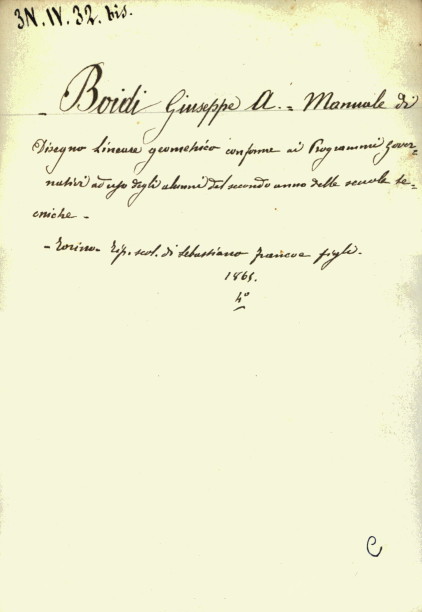 3N. IV. 32. bis.
- Boidi Giuseppe A. = Manuale di
Disegno Lineare geometrico conforme ai Programmi Gover-
nativi ad uso degli alunni del secondo anno delle scuole te-
cniche -
- Torino - Tip. scol. di Sebastiano Franco e figli.
1865.
4º
C